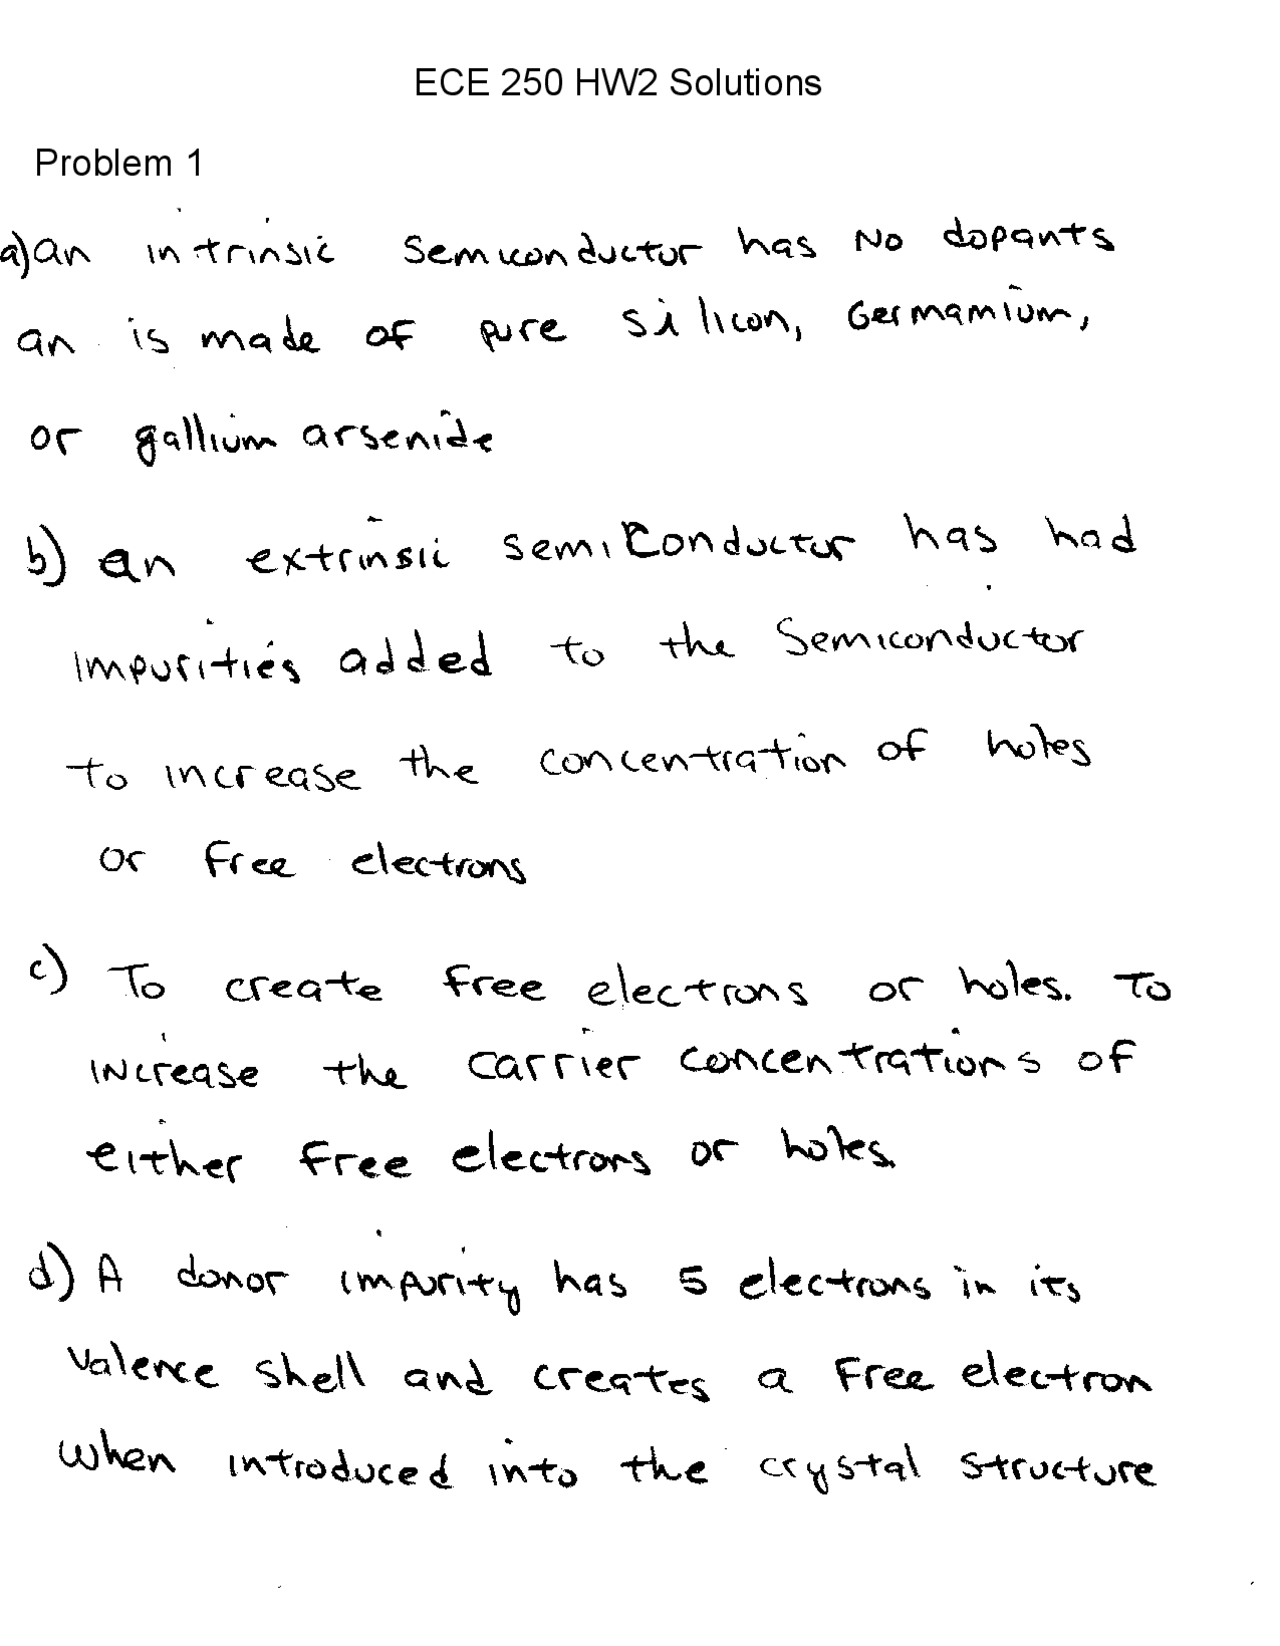 ECE 250 HW2 Solutions
Problem 1
a) an intrinsic semiconductor has No dopants
an is made of pure silicon, Germamium,
or gallium arsenide
b) an extrinsic semiconductor has had
impurities added to the Semiconductor
to increase the concentration of holes
or free electrons
c) To create free electrons or holes. To
increase the carrier concentrations of
either free electrons or holes.
d) A donor impurity has 5 electrons in its
valence shell and creates a free electron
when introduced into the crystal structure